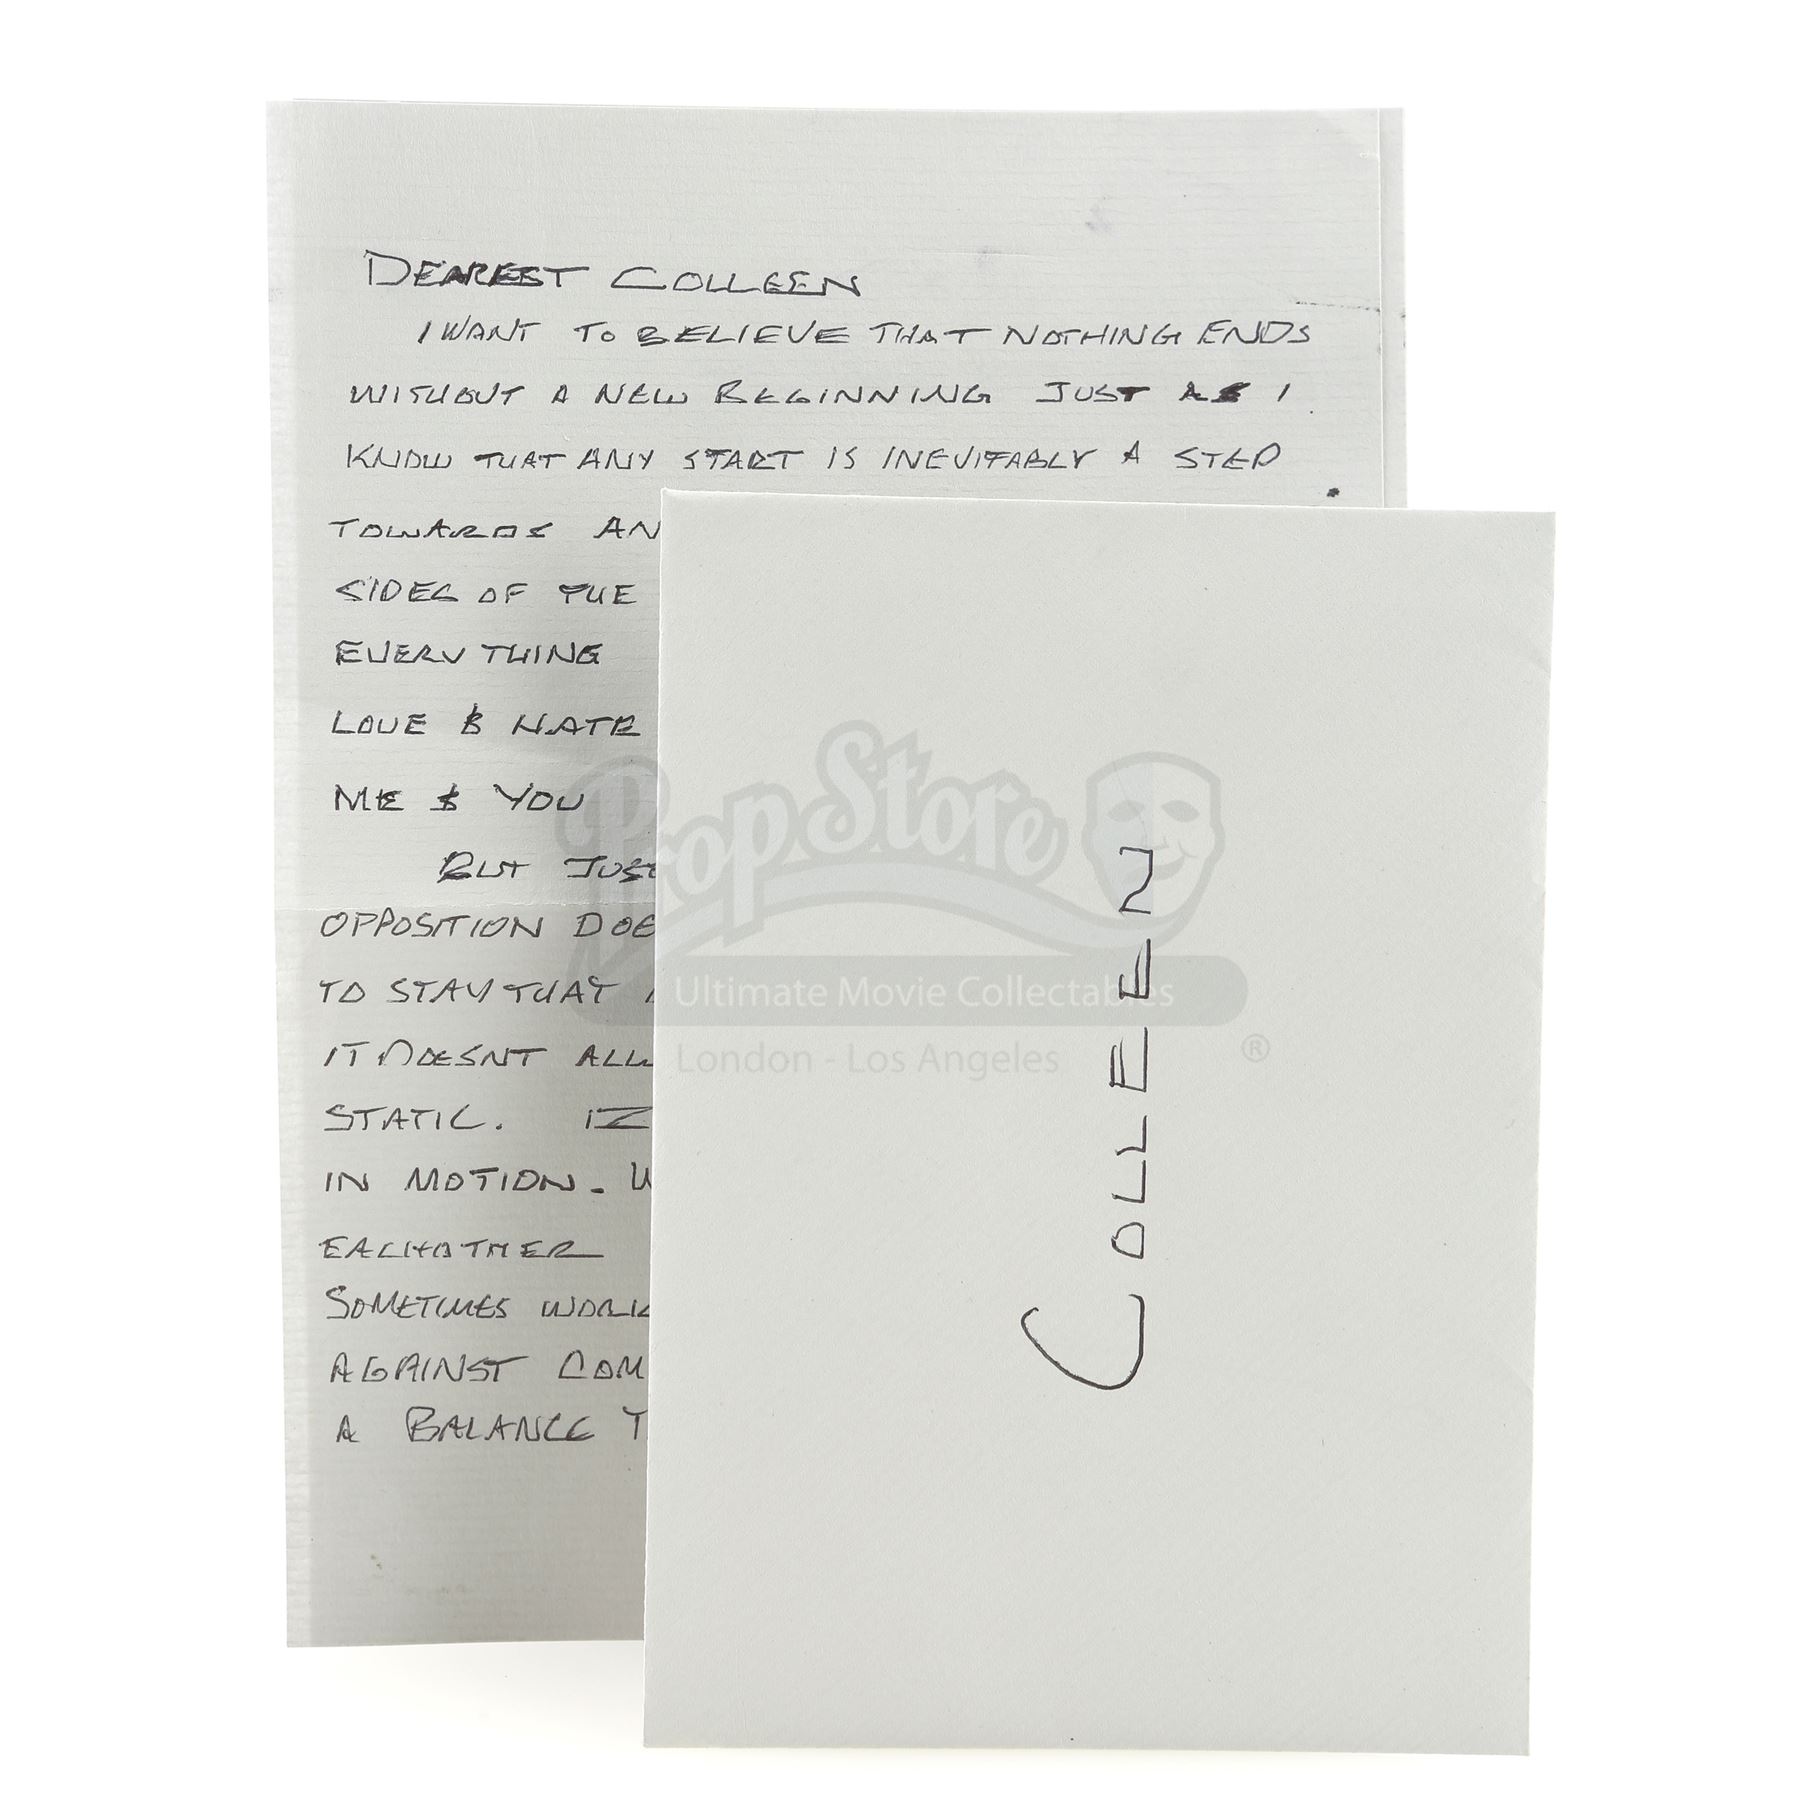 DEAREST COLLEEN
I WANT TO BELIEVE THAT NOTHING ENDS
WITHOUT A NEW BEGINNING JUST AS I
KNOW THAT ANY START IS INEVITABLY A STEP
TOWARDS AN
SIDES OF THE
EVERYTHING
LOVE & HATE
ME & YOU
BUT JUS
OPPOSITION DOE
TO STAY THAT
IT DOESNT ALL
STATIC.
IN MOTION. W
EACHOTHER
SOMETIMES WORK
AGAINST COM
A BALANCE T
COLLEEN
PropStore
Ultimate Movie Collectables
London - Los Angeles
®